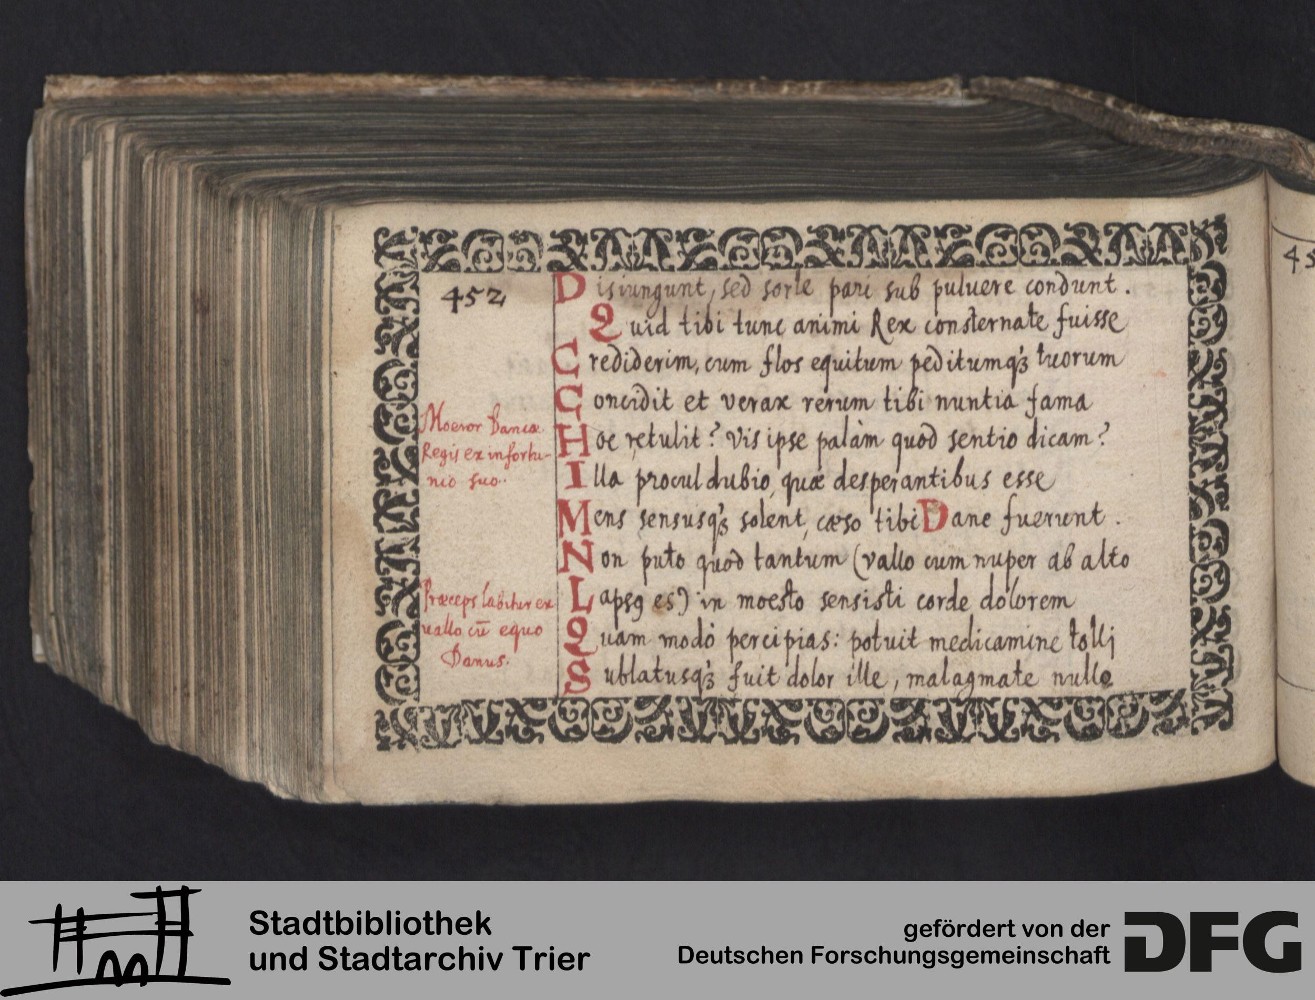 452
Disiungunt, sed sorte pari sub puluere condunt.
Quid tibi tunc animi Rex consternate fuisse
Crediderim, cum flos equitum peditumqꝫ tuorum
Concidit et verax rerum tibi nuntia fama
Hoc retulit? Vis ipse palàm quod sentio dicam?
Illa procul dubio, quæ desperantibus esse
Mens sensusqꝫ solent, cæso tibi Dane fuerunt.
Non puto quod tantum (vallo cum nuper ab alto
Lapsꝯ es) in moesto sensisti corde dolorem
Quam modò percipias: potuit medicamine tolli
Sublatusqꝫ fuit dolor ille, malagmate nullo
Moeror Daniæ
Regis ex infortu-
nio suo.
Præceps labitur ex
vallo cū equo
Danus.
45
Stadtbibliothek
und Stadtarchiv Trier
gefördert von der
Deutschen Forschungsgemeinschaft
DFG